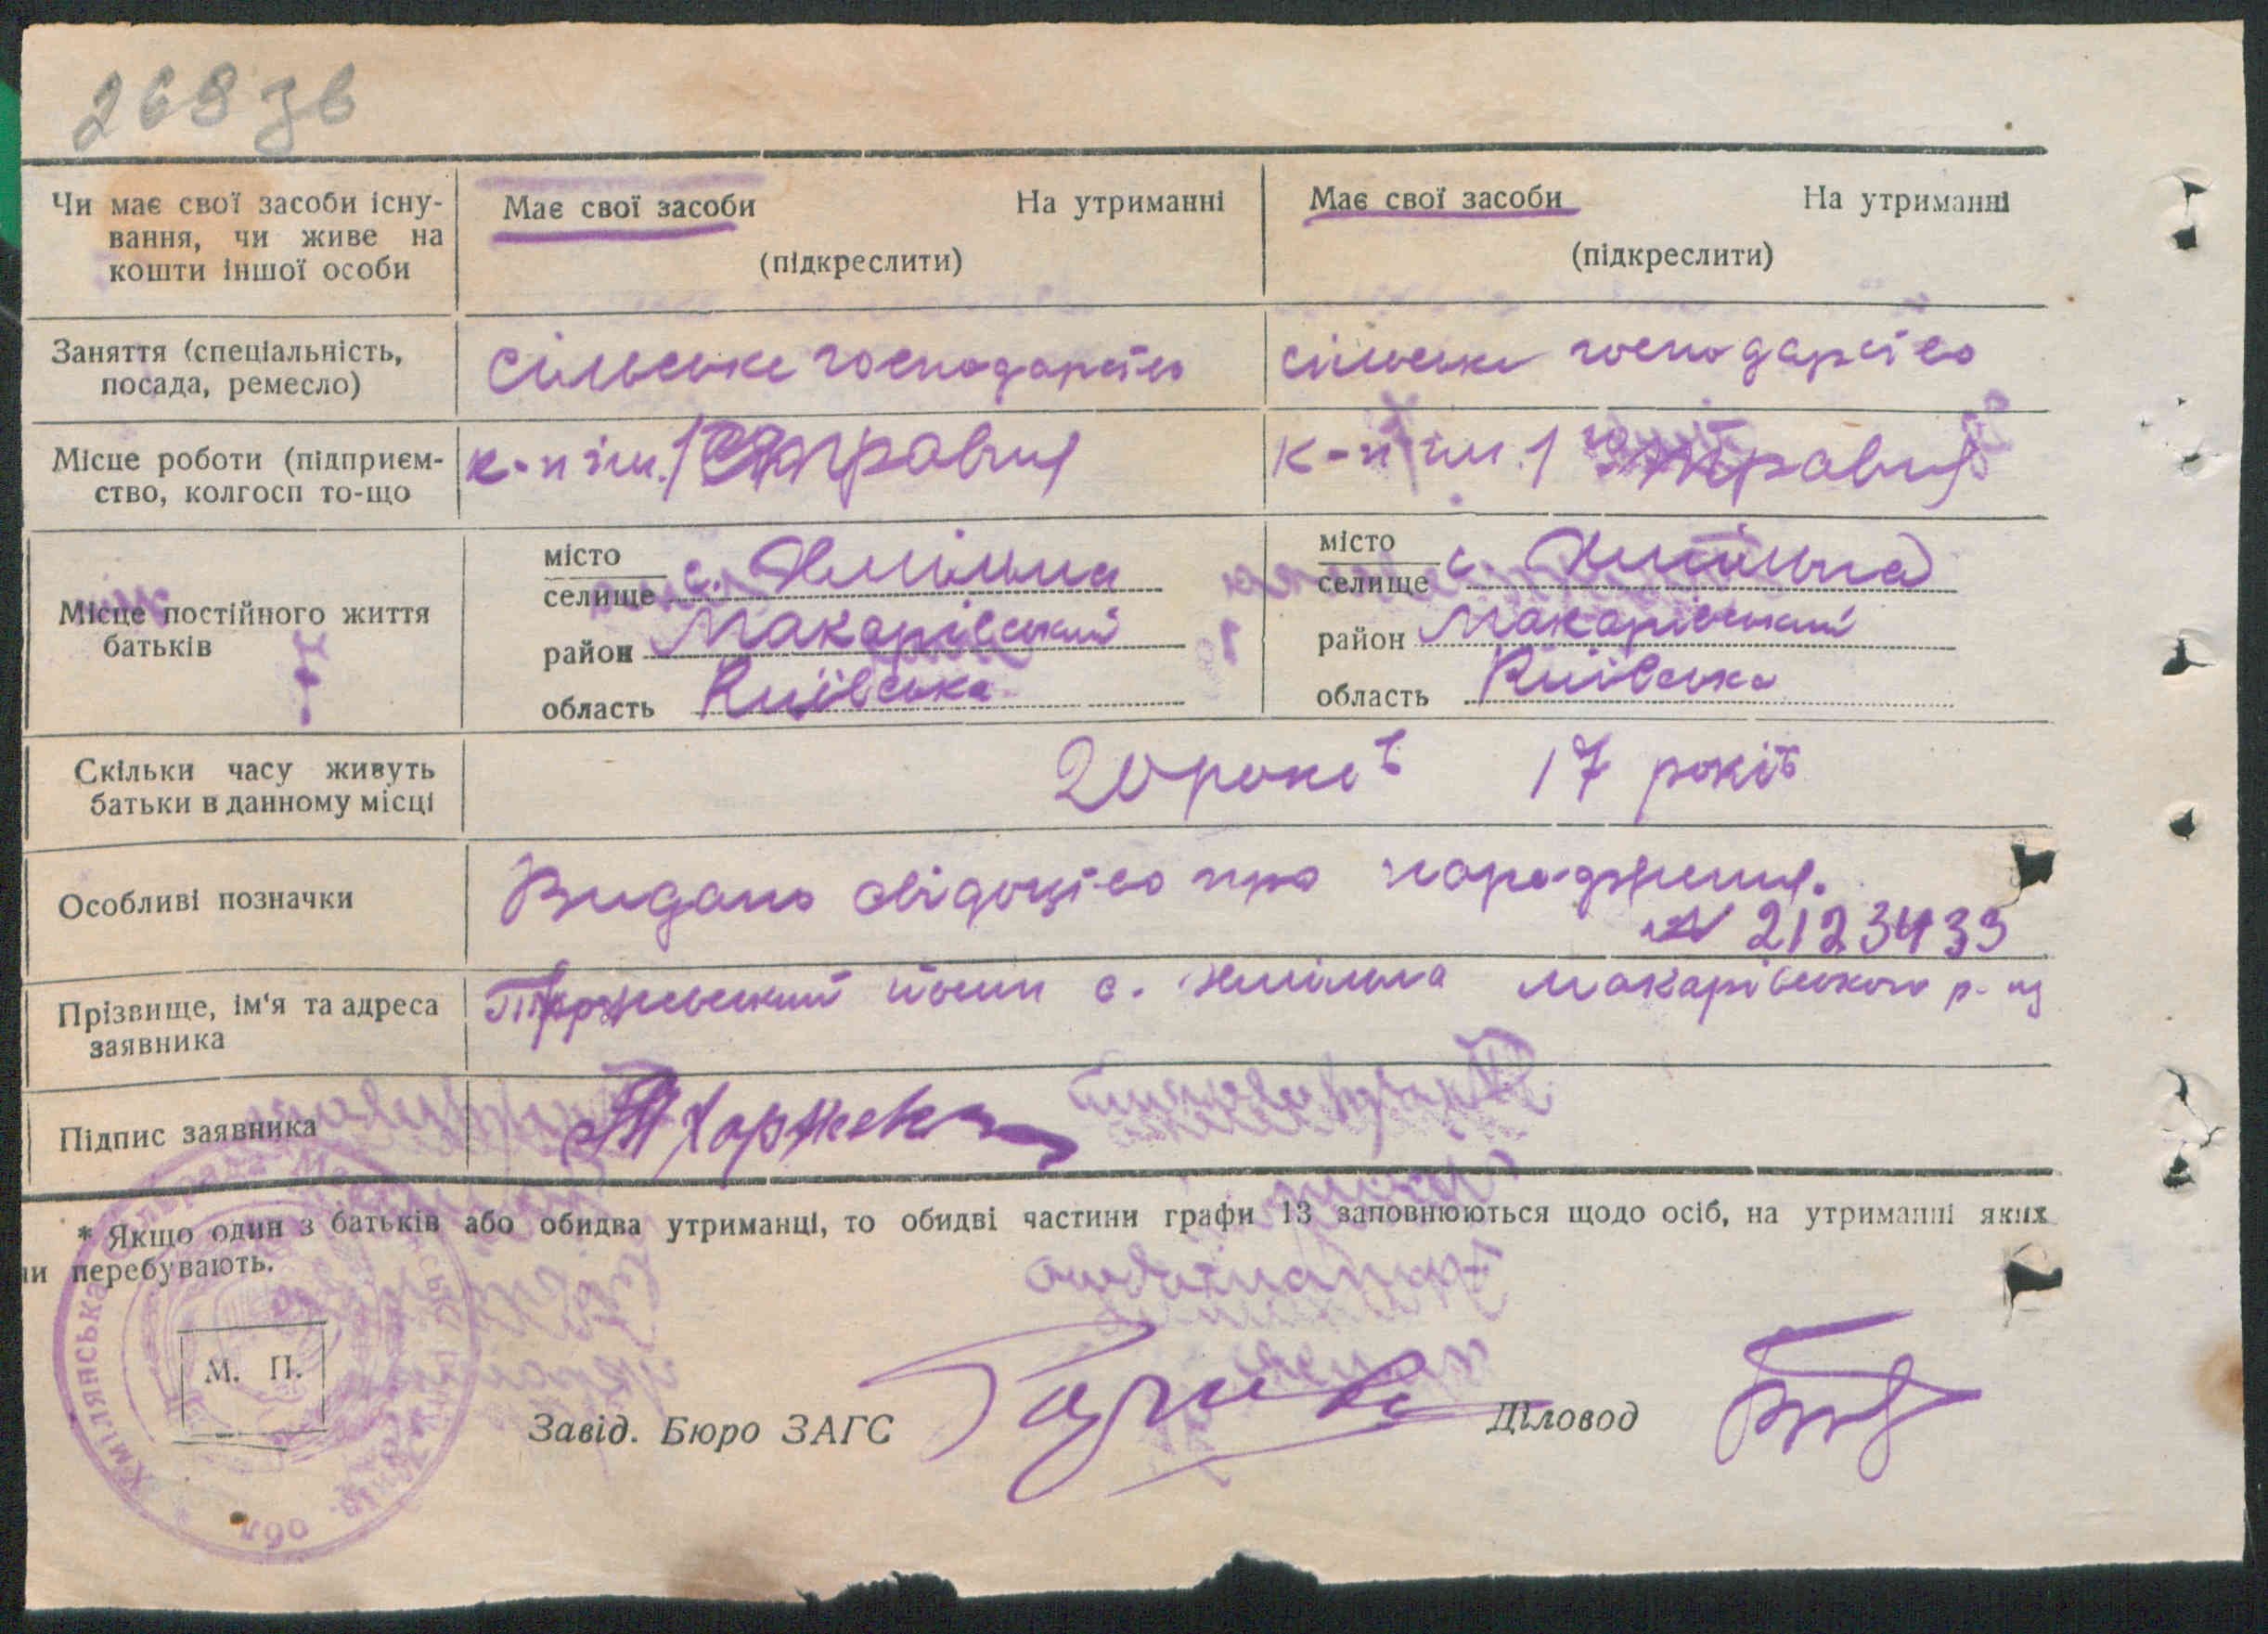 268 зв
Чи має свої засоби існу-
вання, чи живе на
кошти іншої особи
Має свої засоби На утриманні
(підкреслити)
Має свої засоби На утриманні
(підкреслити)
Заняття (спеціальність,
посада, ремесло)
сільське господарство
сільське господарство
Місце роботи (підприєм-
ство, колгосп то-що
к-п ім. 1 травня
к-п ім. 1 травня
Місце постійного життя
батьків
місто
селище с. Хмільна
район Макарівський
область Київська
місто
селище с. Хмільна
район Макарівський
область Київська
Скільки часу живуть
батьки в данному місці
20 років 17 років
Особливі позначки
Видано свідоцтво про народження.
N 2123433
Прізвище, ім'я та адреса
заявника
с. Хмільна Макарівського р-ну
Підпис заявника
* Якщо один з батьків або обидва утриманці, то обидві частини графи 13 заповнюються щодо осіб, на утриманні яких
ни перебувають.
М. П.
Хмілянська
обл.
Завід. Бюро ЗАГС
Діловод